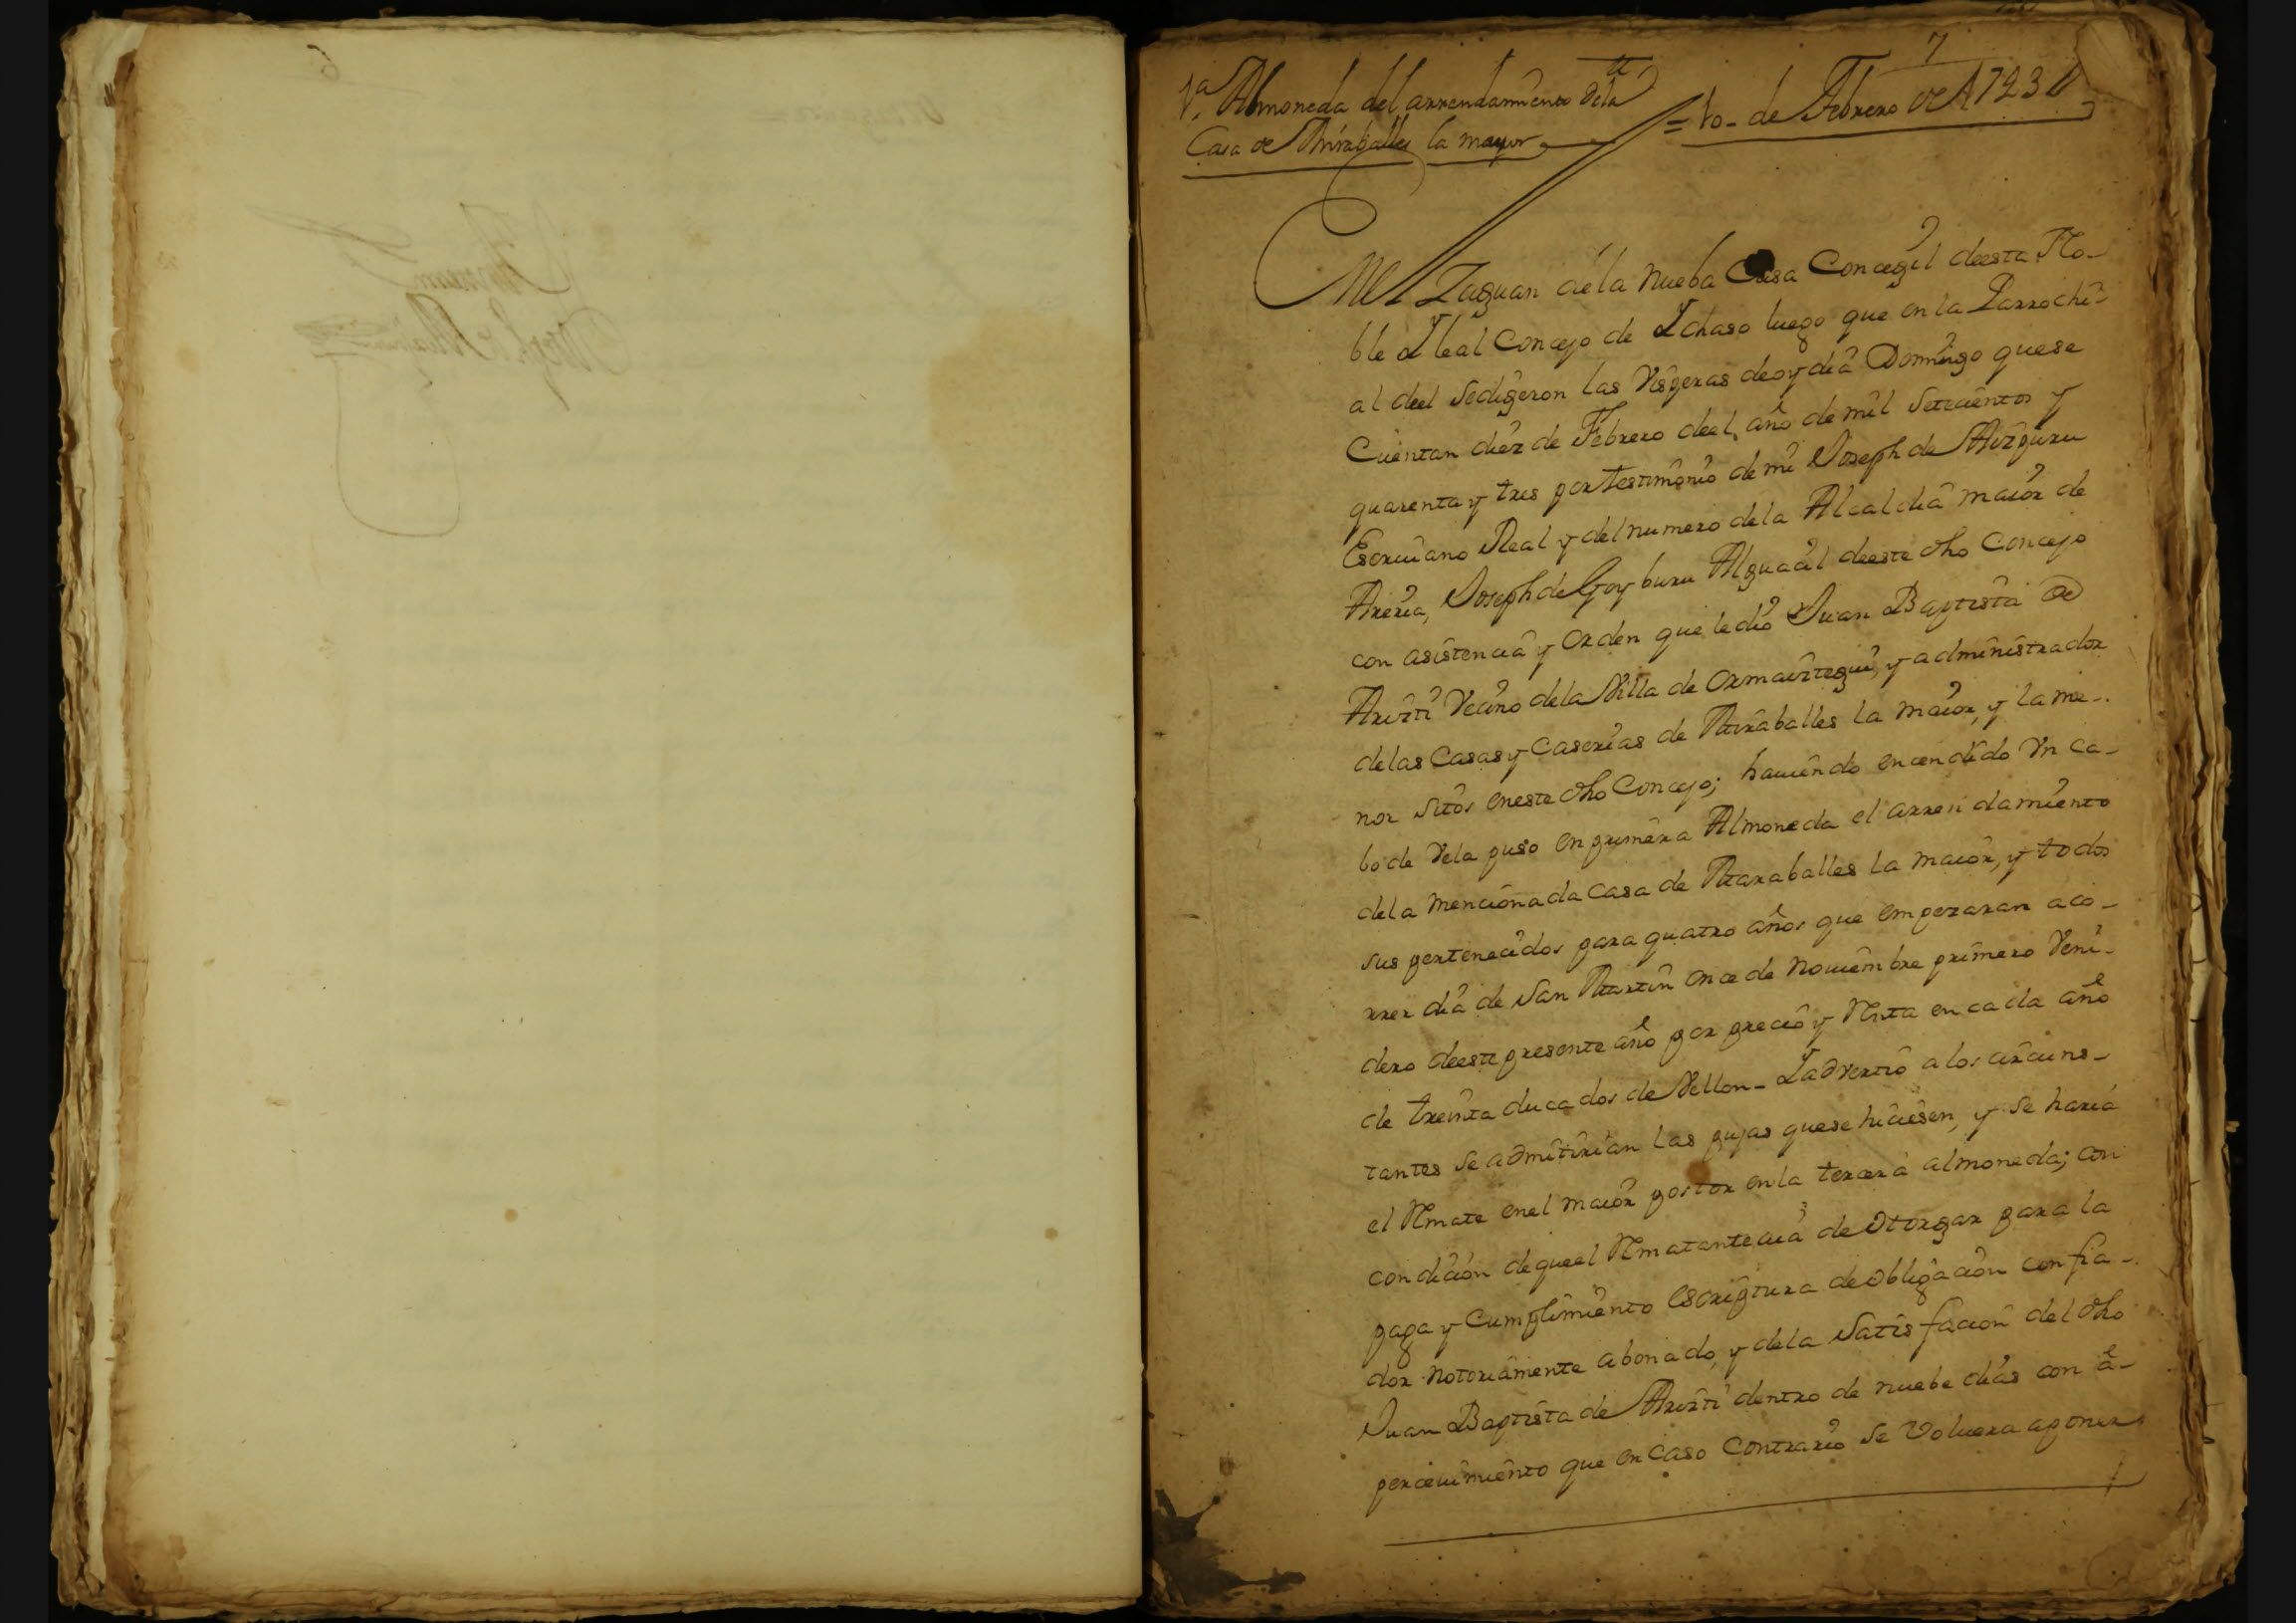 7
1.ª Almoneda del arrendamiento dela
Casa de Miraballes la mayor = 10 de Febrero de 1743
En el Zaguan de la nueba Casa Concegil deesta No-
ble Y leal Concejo de Ychaso luego que en la Parrochi-
al deel Sedigeron las Visperas deoy dia Domingo quese
Cuentan diez de Febrero deel año de mil Setecientos y
quarenta y tres por testimonio de mi Joseph de Aizpuru
Escriuano Real y del numero dela Alcaldia maior de
Areria, Joseph de Goyburu Alguacil deeste dho Concejo
con asistencia y Orden que ledio Juan Baptista de
Arizti Vecino dela Villa de Ormaiztegui, y administrador
delas Casas y Caserias de Miraballes la maior, y la me-
nor Sitos eneste dho Concejo; hauiendo encendido Vn ca-
bo de Vela puso en primera Almoneda el arrendamiento
dela mencionada Casa de Maraballes la maior, y todos
sus pertenecidos para quatro años que empezaran a co-
rrer dia de San Martin once de Nouiembre primero Veni-
dero deeste presente año por precio y Renta en cada año
de treinta ducados de Vellon - Y advertio a los circuns-
tantes se admitirian las pujas quese hiciesen, y se haria
el Rmate enel maior postor enla tercera almoneda; con
condicion dequeel Rmatante aia de Otorgar para la
paga y Cumplimiento escriptura de obligacion con fia-
dor notoriamente abonado, y dela Satisfacion del dho
Juan Baptista de Arizti dentro de nuebe dias con a-
perceuimiento que en caso contrario se Voluera aponer